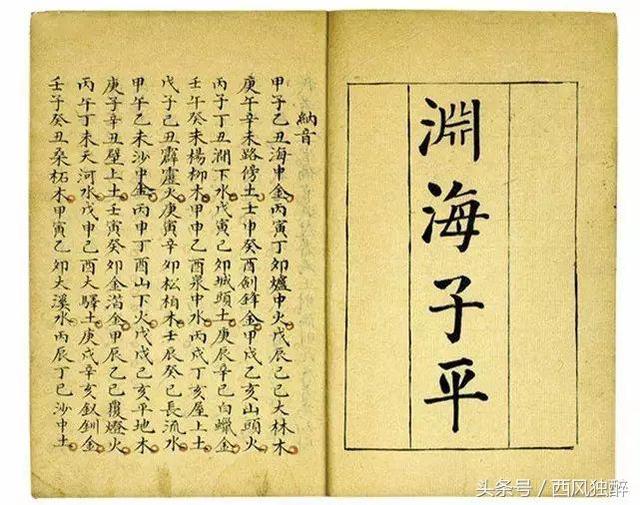 淵海子平
納音
甲子乙丑海中金丙寅丁卯爐中火戊辰己巳大林木
庚午辛未路傍土壬申癸酉劍鋒金甲戌乙亥山頭火
丙子丁丑澗下水戊寅己卯城頭土庚辰辛巳白蠟金
壬午癸未楊柳木甲申乙酉泉中水丙戌丁亥屋上土
戊子己丑霹靂火庚寅辛卯松柏木壬辰癸巳長流水
甲午乙未沙中金丙申丁酉山下火戊戌己亥平地木
庚子辛丑壁上土壬寅癸卯金箔金甲辰乙巳覆燈火
丙午丁未天河水戊申己酉大驛土庚戌辛亥釵釧金
壬子癸丑桑柘木甲寅乙卯大溪水丙辰丁巳沙中土
头条号／西风独醉